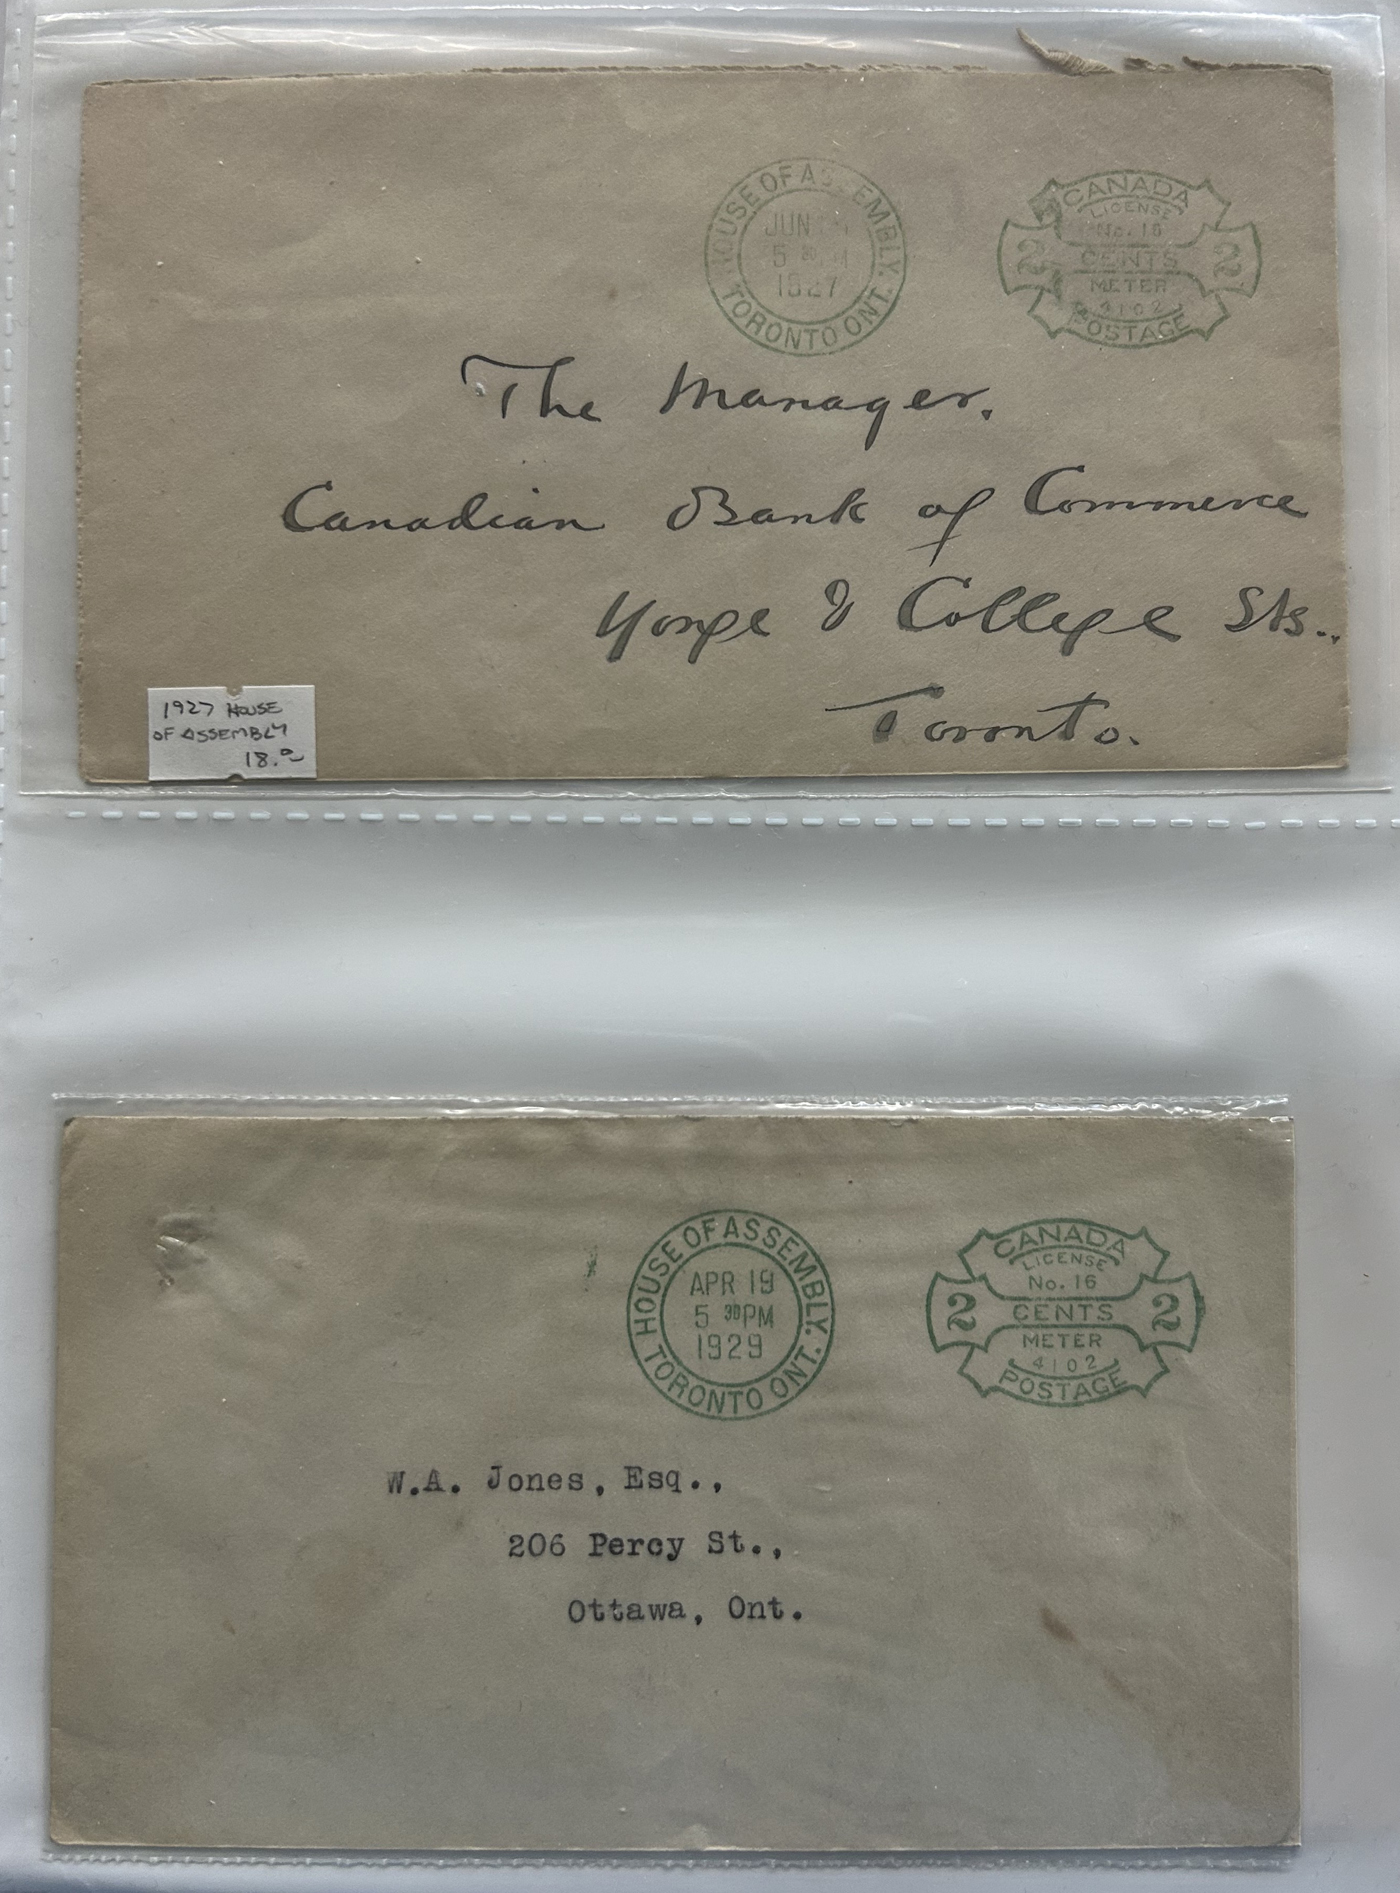 HOUSE OF ASSEMBLY.
TORONTO ONT.
JUN
5 30 PM
1927
CANADA
LICENSE
No. 16
2 CENTS 2
METER
4102
POSTAGE
The Manager.
Canadian Bank of Commerce
Yonge & College Sts..
Toronto.
1927 HOUSE
OF ASSEMBLY
18.00
HOUSE OF ASSEMBLY.
TORONTO ONT.
APR 19
5 30 PM
1929
CANADA
LICENSE
No. 16
2 CENTS 2
METER
4102
POSTAGE
W.A. Jones, Esq.,
206 Percy St.,
Ottawa, Ont.